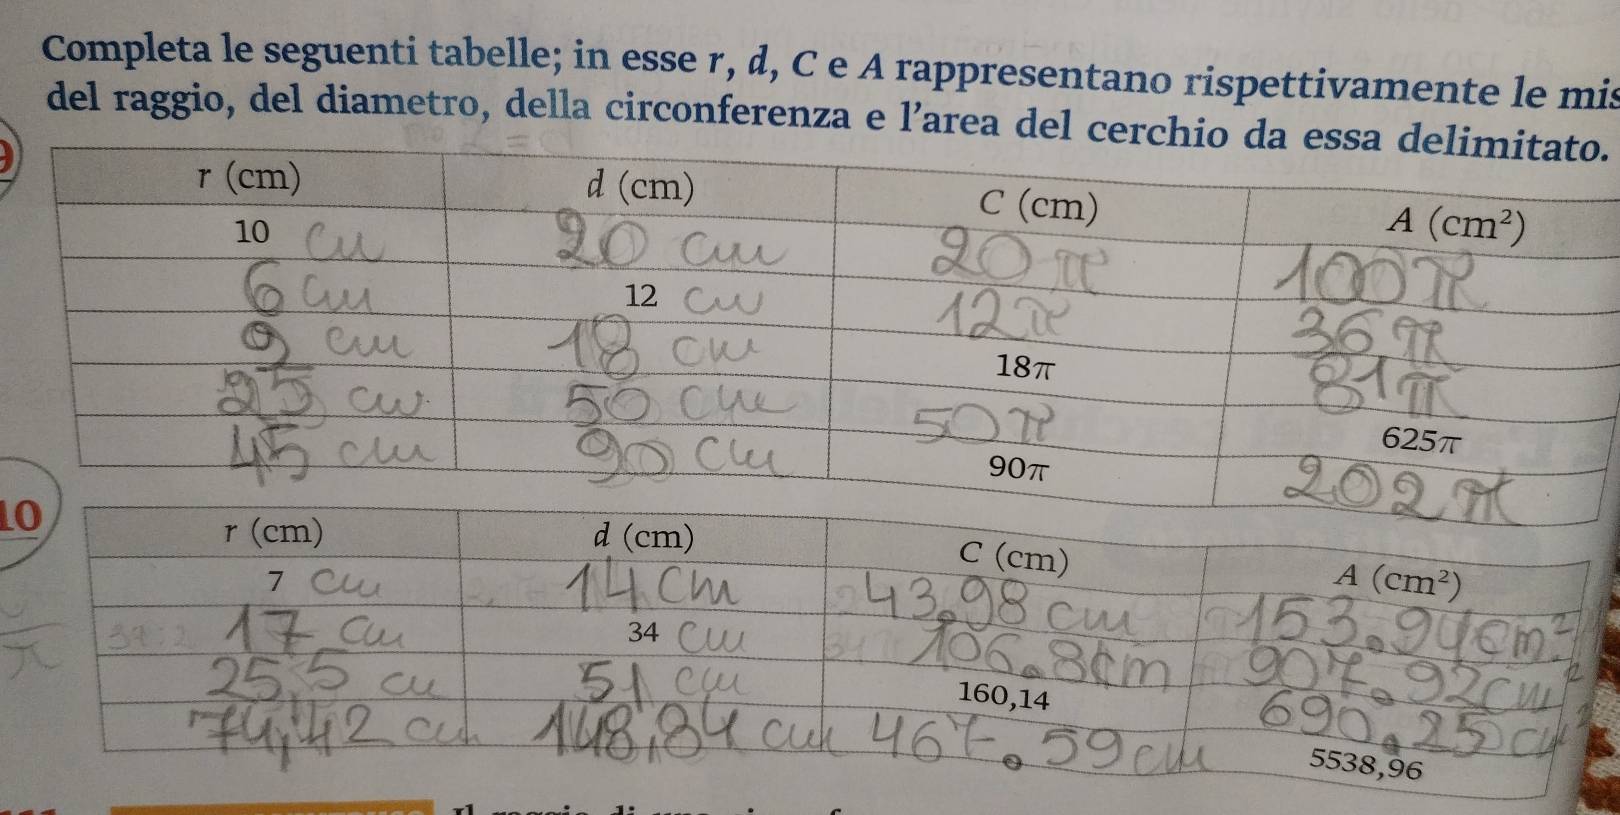 Completa le seguenti tabelle; in esse r, d, C e A rappresentano rispettivamente le mis
del raggio, del diametro, della circonferenza e l'area del cerchio da essa delimitato.
r (cm) d (cm) C (cm) A (cm²)
10 cm 20 cm 20π 100π
6 cm 12 cm 12π 36π
9 cm 18 cm 18π 81π
25 cm 50 cm 50π 625π
45 cm 90 cm 90π 202π
10
r (cm) d (cm) C (cm) A (cm²)
7 cm 14 cm 43,98 cm 153,94 cm²
17 cm 34 cm 106,8 cm 907,92 cm²
25,5 cm 51 cm 160,14 690,25 cm²
74,42 cm 148,84 cm 467,59 cm 5538,96